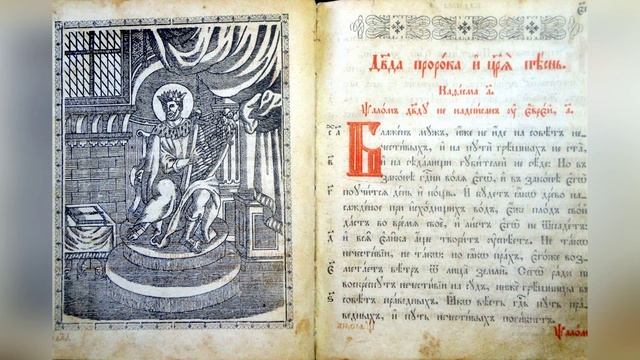 Дв҃да проро́ка и҆ цр҃ѧ̀ пѣ́снь.
Каѳі́сма а҃.
Ѱало́мъ дв҃дꙋ не надпи́санъ ᲂу҆ є҆вре́й, а҃.
Блаже́нъ мꙋ́жъ, и҆́же не и҆́де на совѣ́тъ не-
чести́выхъ, и҆ на пꙋтѝ грѣ́шныхъ не ста̀,
и҆ на сѣда́лищи гꙋби́телей не сѣ́де. Но въ
зако́нѣ гдⷭ҇ни во́лѧ є҆гѡ̀, и҆ въ зако́нѣ є҆гѡ̀
поꙋчи́тсѧ де́нь и҆ но́щь. И҆ бꙋ́детъ ꙗ҆́кѡ дре́во на-
сажде́ное при и҆схо́дищихъ во́дъ, є҆́же пло́дъ сво́й
да́стъ во вре́мѧ своѐ, и҆ ли́стъ є҆гѡ̀ не ѿпаде́тъ:
и҆ всѧ̑ є҆ли̑ка а҆́ще твори́тъ ᲂу҆спѣ́етъ. Не та́кѡ
нечести́вїи, не та́кѡ: но ꙗ҆́кѡ пра́хъ, є҆го́же воз-
мета́етъ вѣ́тръ ѿ лица̀ землѝ. Сегѡ̀ ра́ди не
воскре́снꙋтъ нечести́вїи на сꙋ́дъ, нижѐ грѣ́шницы въ
совѣ́тъ пра́ведныхъ. Ꙗ҆́кѡ вѣ́сть гдⷭ҇ь пꙋ́ть пра́-
ведныхъ, и҆ пꙋ́ть нечести́выхъ поги́бнетъ.
Ѱало́мъ